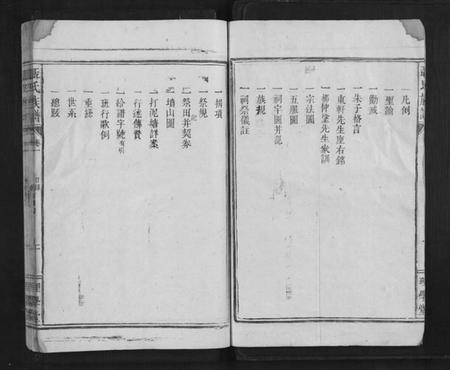 凡例
一聖諭
一勸戒
一朱子格言
一東軒先生座右銘
一柳仲塗先生家訓
一宗法圖
一五服圖
一祠宇圖并記
一族規
一祠祭儀註
一捐項
一祭規
一祭田并契券
一墳山圖
一打泥塘詳案
一行述傳贊
一給譜字號有引
一班行歌例
一垂絲
一世系
一總跋
氏族譜
卷
理學堂